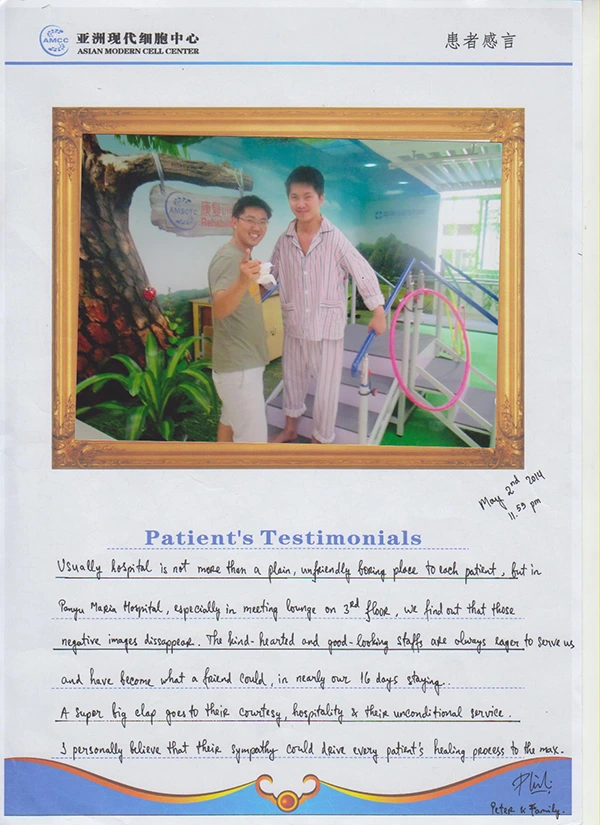 AMCC
亚洲现代细胞中心
ASIAN MODERN CELL CENTER
患者感言
康复
May 2nd 2014
11.59 pm
Patient's Testimonials
Usually hospital is not more than a plain, unfriendly boring place to each patient, but in
Panyu Maria Hospital, especially in meeting lounge on 3rd floor, we find out that those
negative images dissappear. The kind-hearted and good-looking staffs are always eager to serve us
and have become what a friend could, in nearly our 16 days staying..
A super big clap goes to their courtesy, hospitality & their unconditional service.
I personally believe that their sympathy could drive every patient's healing process to the max.
Peter & Family.